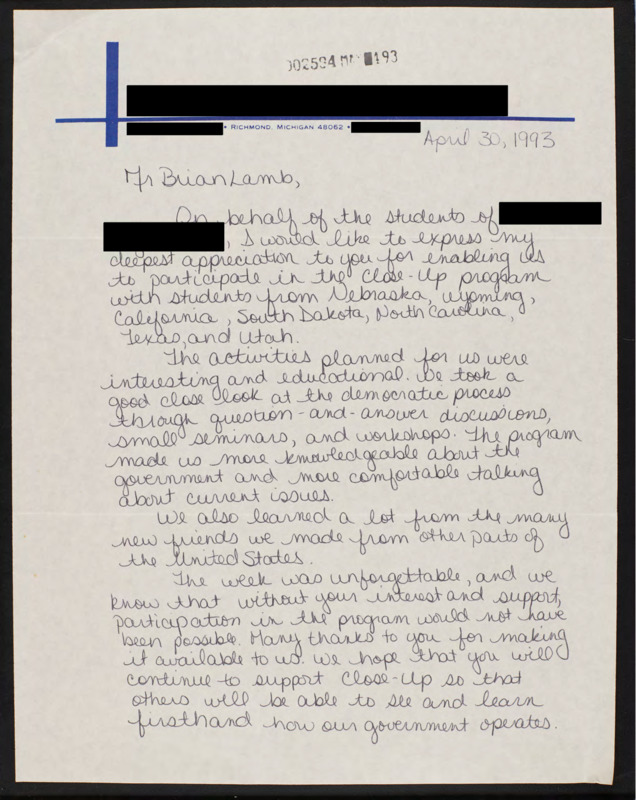 002594 MAY 193
• RICHMOND, MICHIGAN 48062 •
April 30, 1993
Mr Brian Lamb,
On behalf of the students of
, I would like to express my
deepest appreciation to you for enabling us
to participate in the Close-Up program
with students from Nebraska, Wyoming,
California, South Dakota, North Carolina,
Texas, and Utah.
The activities planned for us were
interesting and educational. We took a
good close look at the democratic process
through question-and-answer discussions,
small seminars, and workshops. The program
made us more knowledgeable about the
government and more comfortable talking
about current issues.
We also learned a lot from the many
new friends we made from other parts of
the United States.
The week was unforgettable, and we
know that without your interest and support,
participation in the program would not have
been possible. Many thanks to you for making
it available to us. We hope that you will
continue to support Close-Up so that
others will be able to see and learn
firsthand how our government operates.